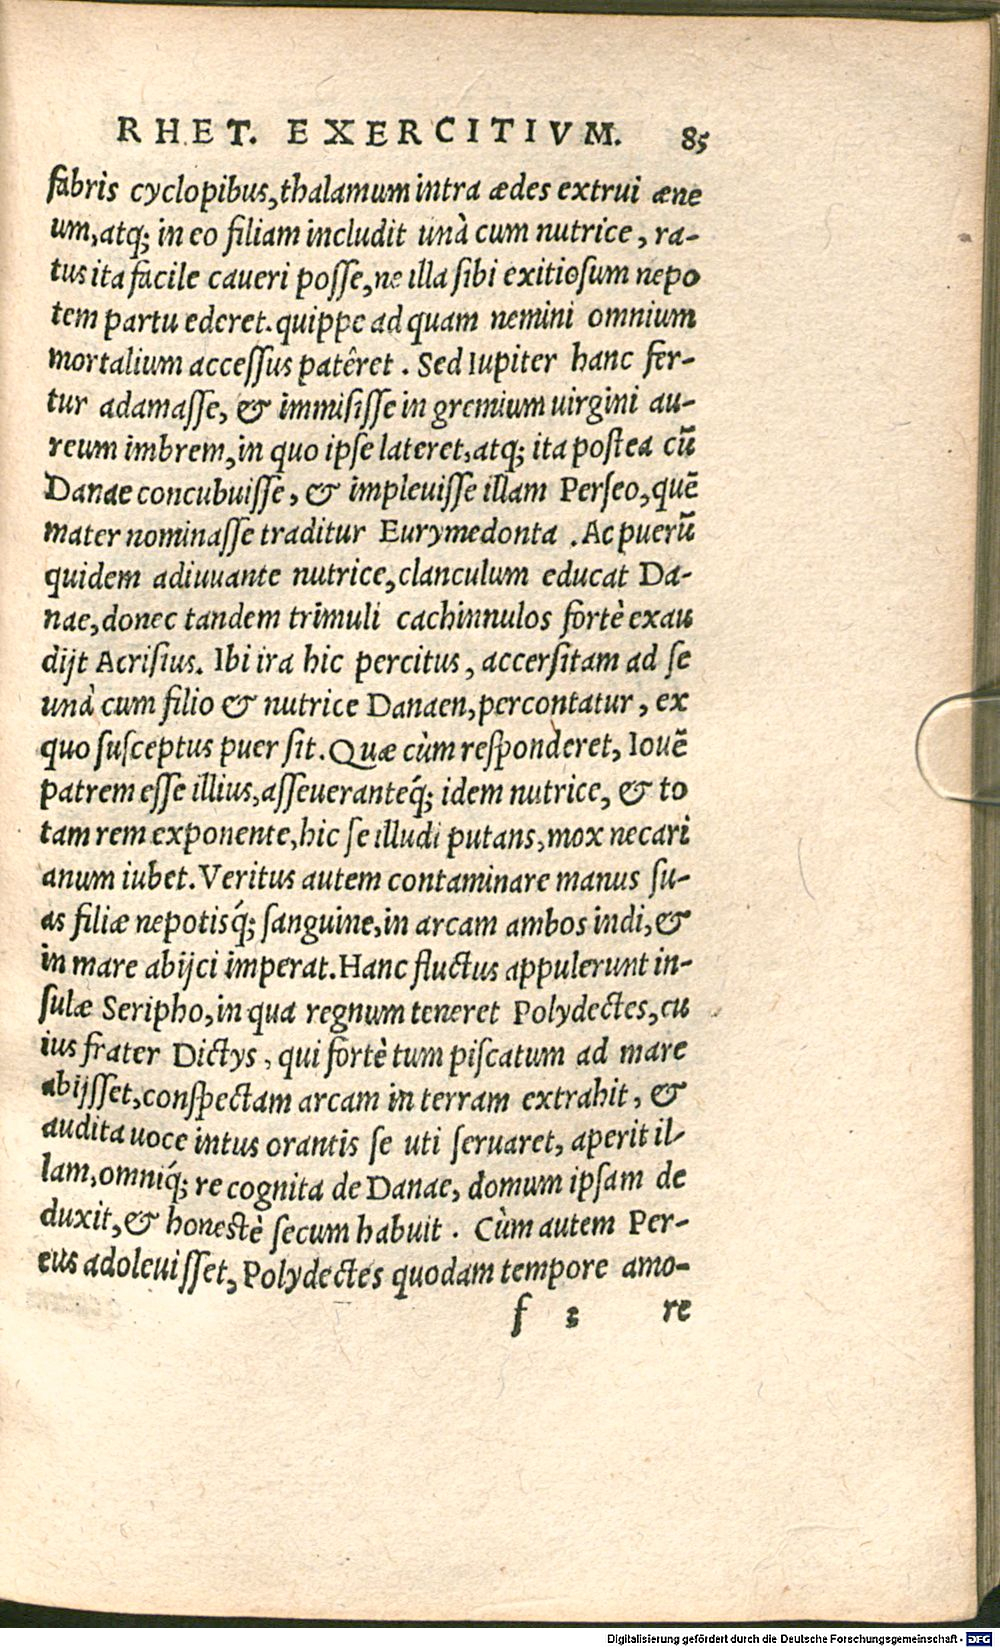 RHET. EXERCITIVM. 85
fabris cyclopibus, thalamum intra ædes extrui æne
um, atq; in eo filiam includit unà cum nutrice, ra-
tus ita facile caueri posse, ne illa sibi exitiosum nepo
tem partu ederet. quippe ad quam nemini omnium
mortalium accessus patêret. Sed Iupiter hanc fer-
tur adamasse, & immisisse in gremium uirgini au-
reum imbrem, in quo ipse lateret, atq; ita postea cū
Danae concubuisse, & impleuisse illam Perseo, quē
mater nominasse traditur Eurymedonta. Ac puerū
quidem adiuuante nutrice, clanculum educat Da-
nae, donec tandem trimuli cachinnulos fortè exau
dijt Acrisius. Ibi ira hic percitus, accersitam ad se
unà cum filio & nutrice Danaen, percontatur, ex
quo susceptus puer sit. Quæ cùm responderet, Iouē
patrem esse illius, asseueranteq́; idem nutrice, & to
tam rem exponente, hic se illudi putans, mox necari
anum iubet. Veritus autem contaminare manus su-
as filiæ nepotisq́; sanguine, in arcam ambos indi, &
in mare abijci imperat. Hanc fluctus appulerunt in-
sulæ Seripho, in qua regnum teneret Polydectes, cu
ius frater Dictys, qui fortè tum piscatum ad mare
abijsset, conspectam arcam in terram extrahit, &
audita uoce intus orantis se uti seruaret, aperit il-
lam, omniq́; re cognita de Danae, domum ipsam de
duxit, & honestè secum habuit. Cùm autem Per-
eus adoleuisset, Polydectes quodam tempore amo-
f 5 re
Digitalisierung gefördert durch die Deutsche Forschungsgemeinschaft - DFG